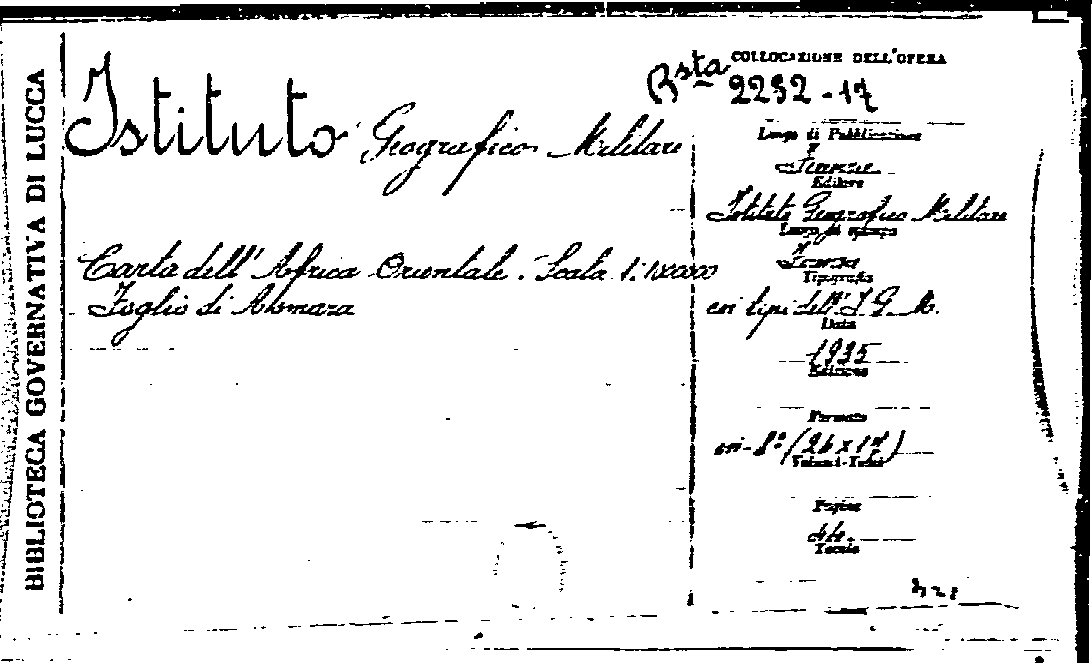 BIBLIOTECA GOVERNATIVA DI LUCCA
Istituto Geografico Militare
Carta dell'Africa Orientale. Scala 1:
Foglio di Asmara
COLLOCAZIONE DELL'OPERA
Bsta 2232-17
Luogo di Pubblicazione
Firenze
Editore
Istituto Geografico Militare
Luogo di stampa
Firenze
Tipografia
coi tipi dell'I. G. M.
Data
1935
Edizione
Formato
in-8° (26x17)
Volumi-Tomi
Pagine
44.
Tavole